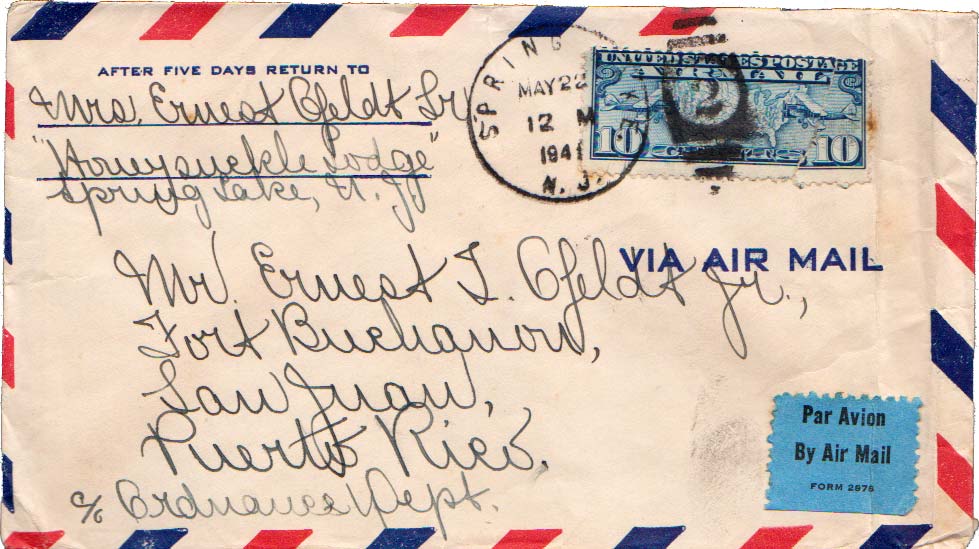 AFTER FIVE DAYS RETURN TO
Mrs. Ernest Ofeldt Sr.
"Honeysuckle Lodge"
Spring Lake, N. J.
SPRING
MAY 22
12 M
1941
N. J.
2
UNITED STATES POSTAGE
AIR MAIL
10 CENTS 10
VIA AIR MAIL
Mr. Ernest I. Ofeldt Jr.,
Fort Buchanon,
San Juan,
Puerto Rico.
c/o Ordnance Dept.
Par Avion
By Air Mail
FORM 2978